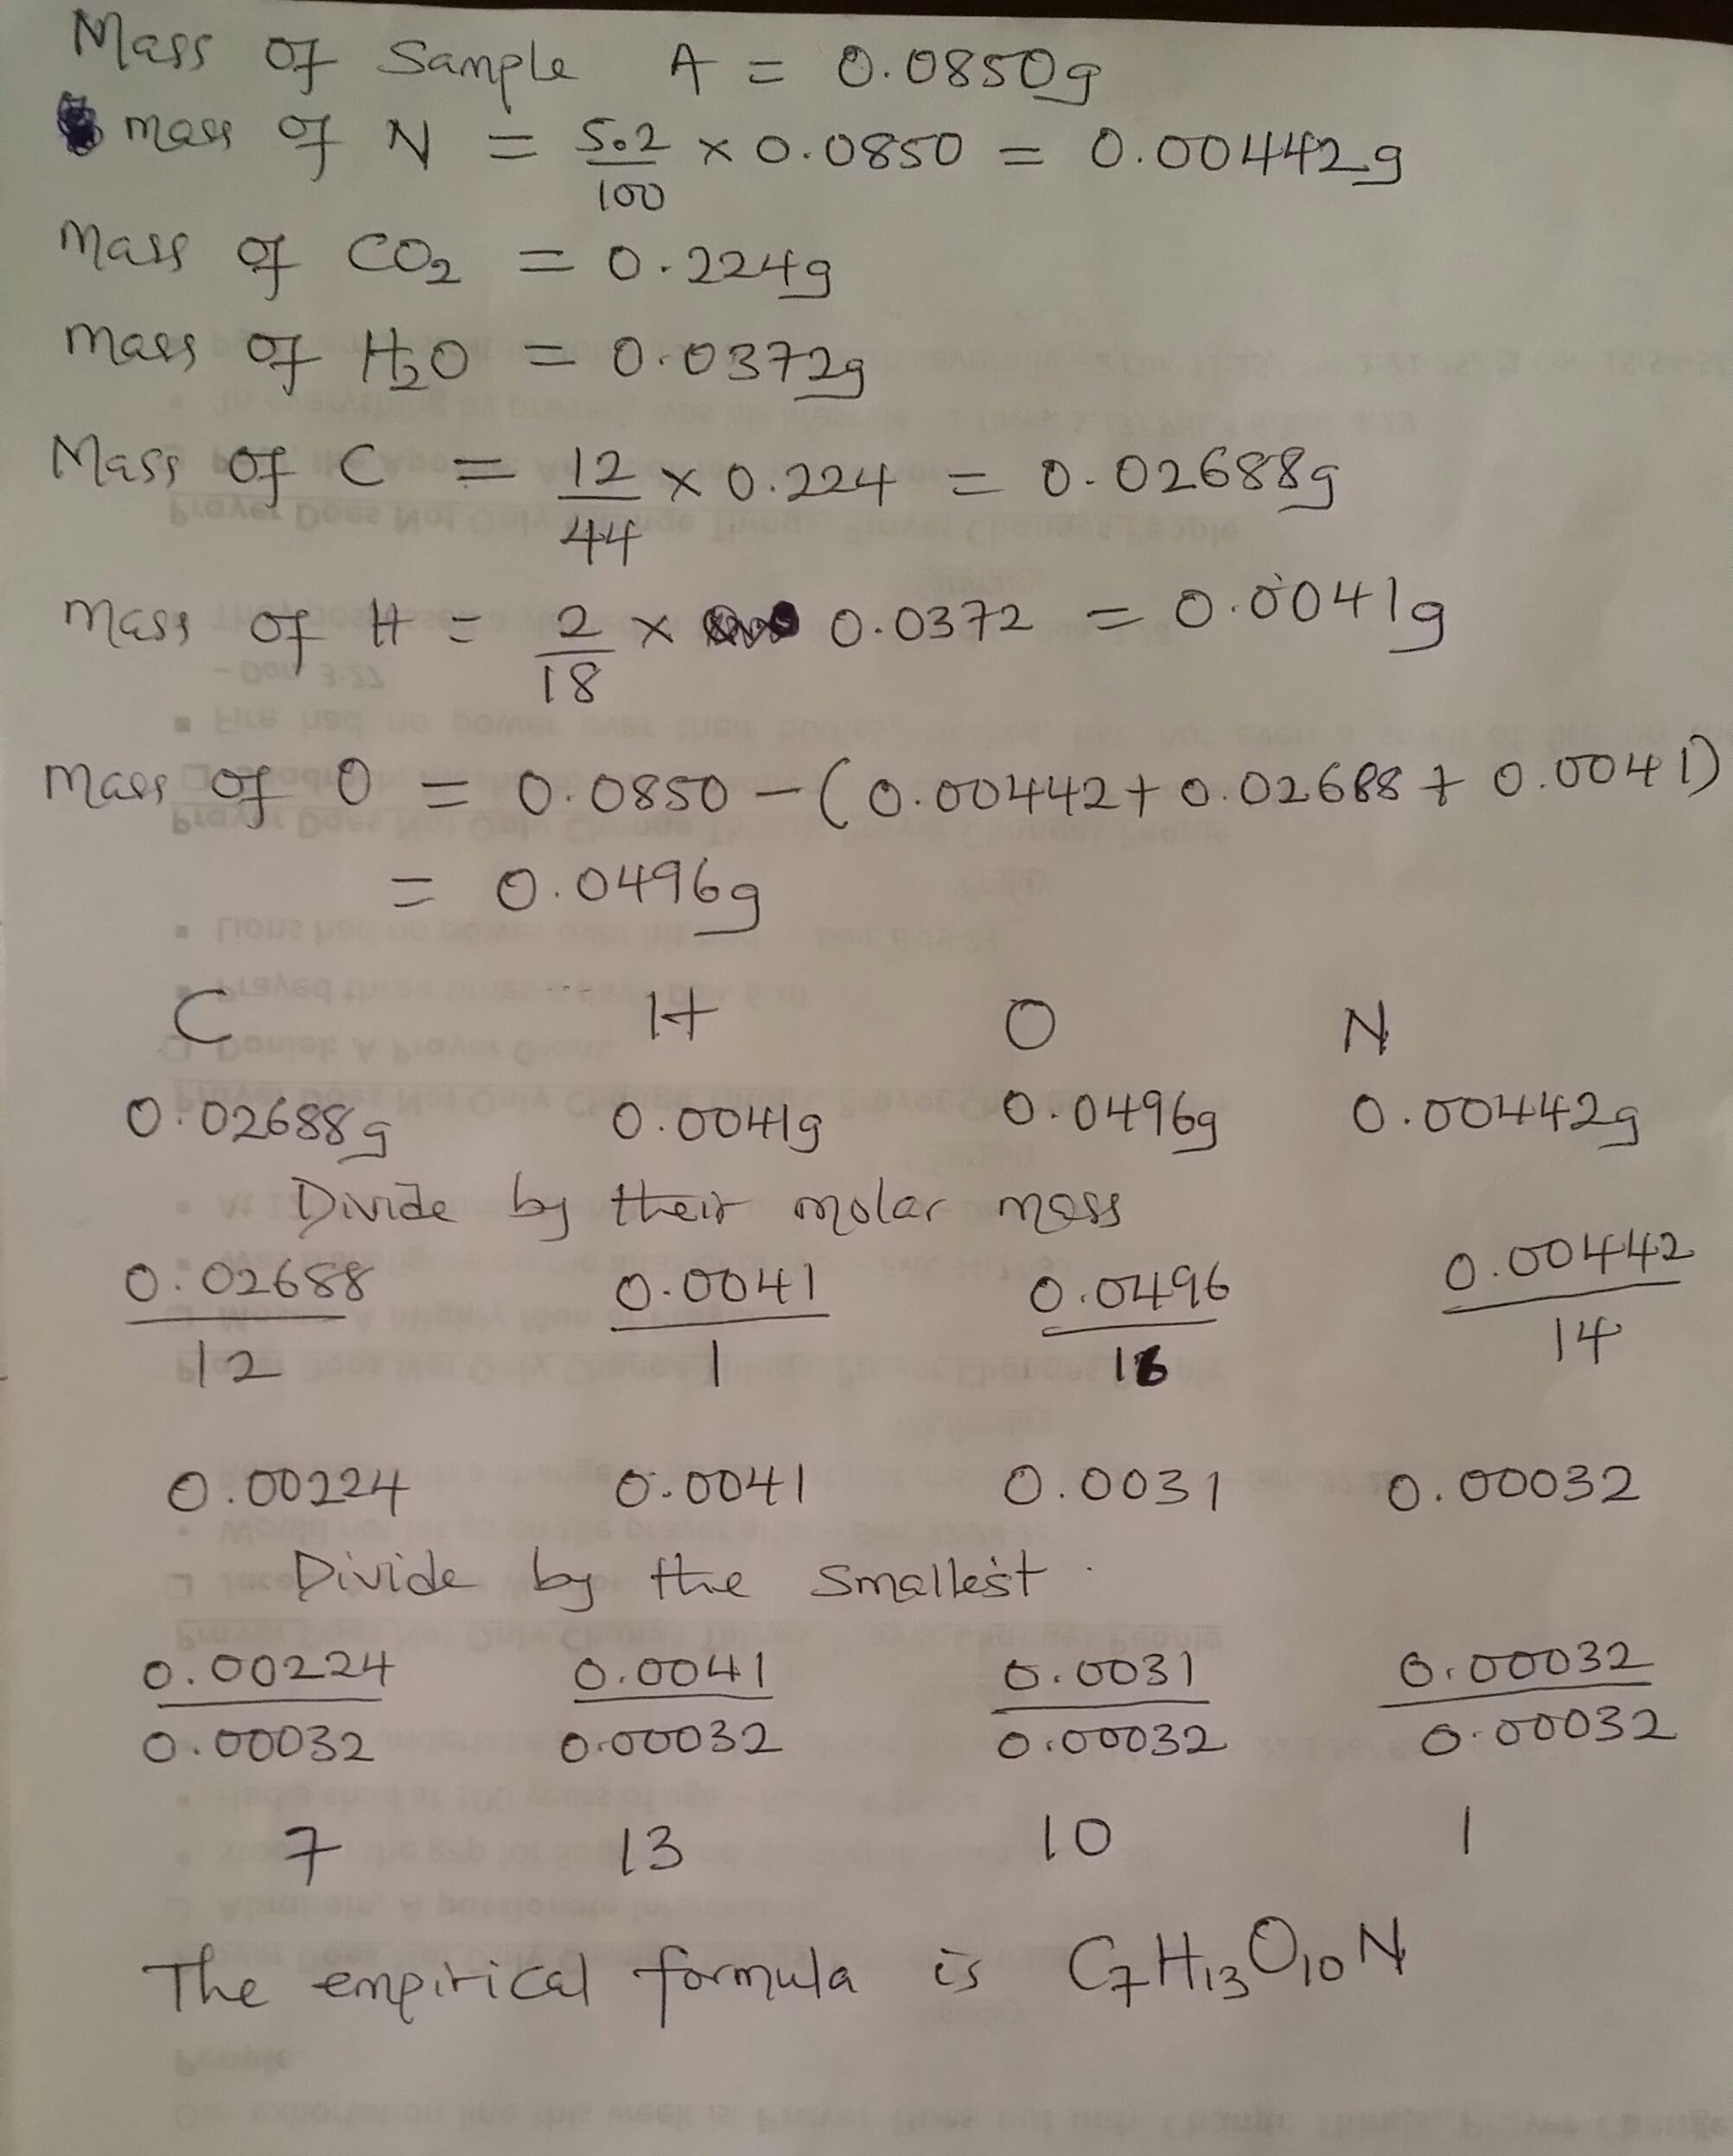 Mass of Sample A = 0.0850g
mass of N = 5.2/100 × 0.0850 = 0.00442g
Mass of CO₂ = 0.224g
Mass of H₂O = 0.0372g
Mass of C = 12/44 × 0.224 = 0.02688g
Mass of H = 2/18 × 0.0372 = 0.0041g
Mass of O = 0.0850 - (0.00442 + 0.02688 + 0.0041)
= 0.0496g
C H O N
0.02688g 0.0041g 0.0496g 0.00442g
Divide by their molar mass
0.02688/12 0.0041/1 0.0496/16 0.00442/14
0.00224 0.0041 0.0031 0.00032
Divide by the smallest
0.00224/0.00032 0.0041/0.00032 0.0031/0.00032 0.00032/0.00032
7 13 10 1
The empirical formula is C₇H₁₃O₁₀N